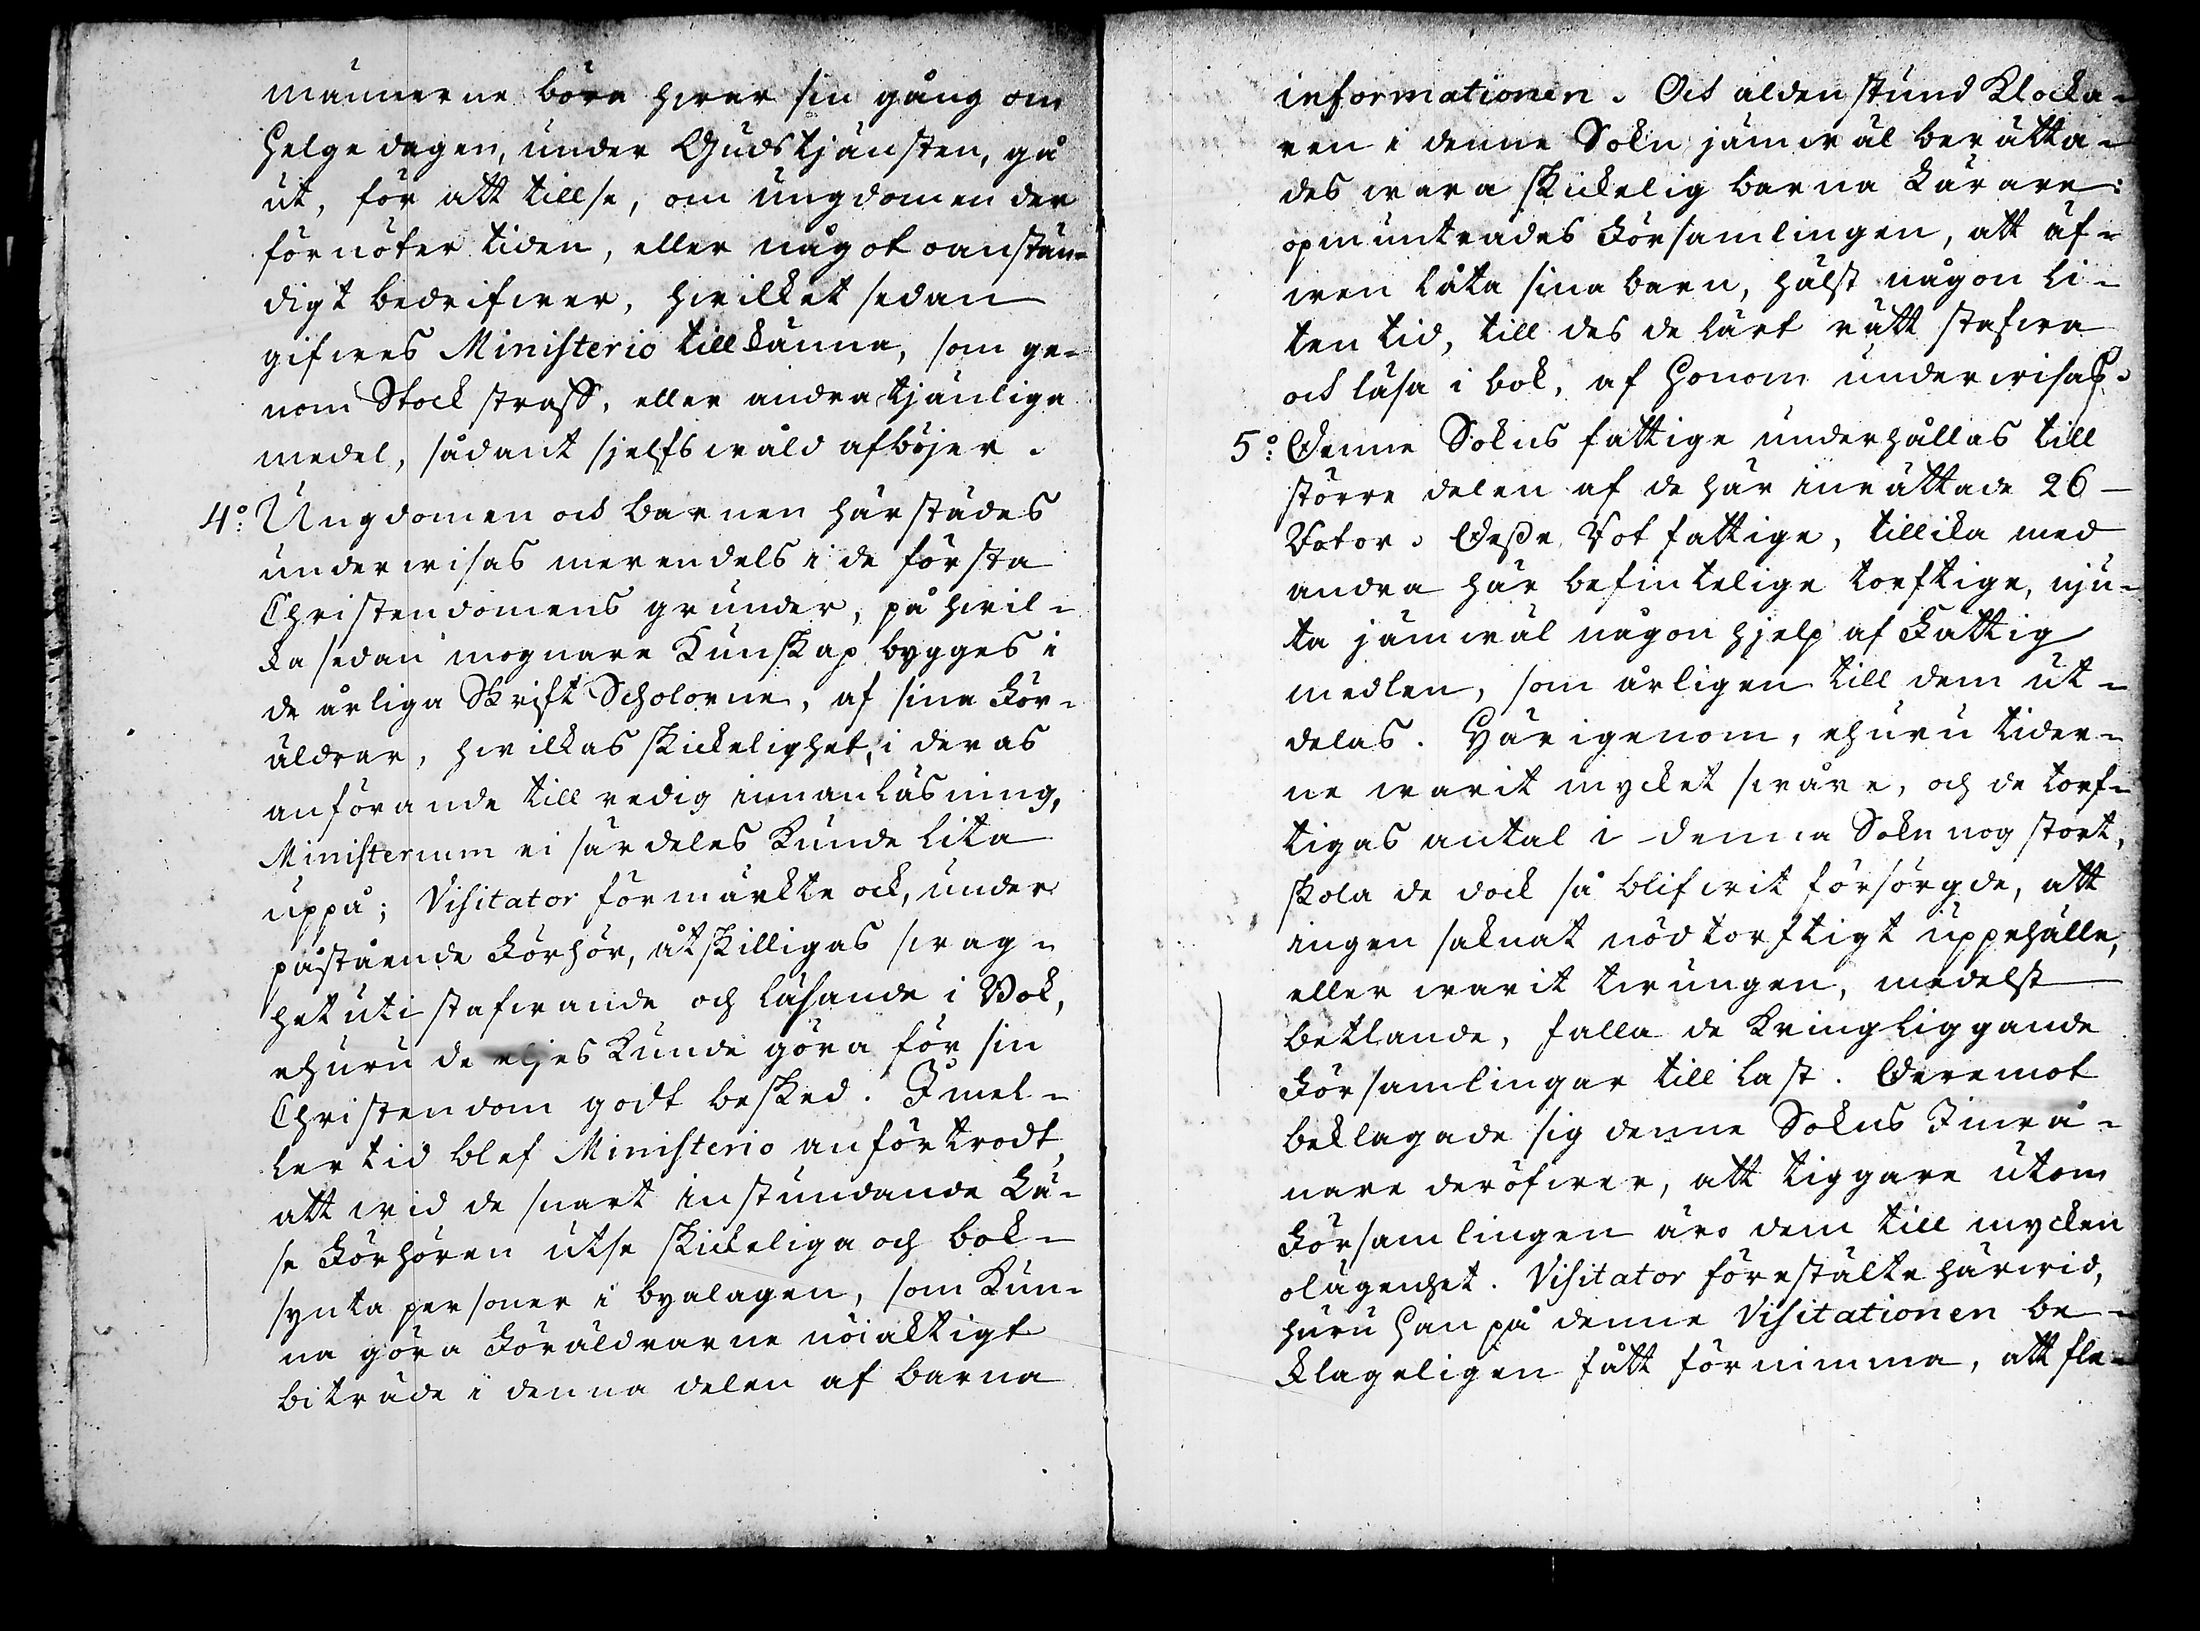 männerne böra hwar sin gång om
Helgedagen, under Gudstjänsten, gå
ut, för att tillse, om ungdomen der
förnöter tiden, eller något oanstän-
digt bedrifwer, hwilket sedan
gifwes Ministerio tillkänna, som ge-
nom Stockstraff, eller andra tjänliga
medel, sådant sjelfswåld afböjer.
4:o Ungdomen och barnen härstädes
underwisas merendels i de första
Christendomens grunder, på hwil-
ka sedan mognare Kunskap bygges i
de årliga Skrift Scholorne, af sina För-
äldrar, hwilkas skickelighet, i deras
anförande till redig innanläsning,
Ministerium ei särdeles kunde lita
uppå; Visitator förmärkte ock, under
påstående Förhör, åtskilligas swag-
het uti stafwande och läsande i Bok,
ehuru de eljes kunde göra för sin
Christendom godt besked. Imel-
lertid blef Ministerio anförtrodt,
att wid de snart instundande Lä-
se Förhören utse skickeliga och bok-
synta personer i byalagen, som kun-
na göra Föräldrarne nöiaktigt
biträde i denna delen af barna
informationen. Och aldenstund Klocka-
ren i denne Sokn jämwäl berätta-
des wara skickelig barna Lärare:
opmuntrades Församlingen, att äf-
wen låta sina barn, hälst någon li-
ten tid, till des de lärt rätt stafwa
och läsa i bok, af Honom underwisas.
5:o Denne Sokns fattige underhållas till
större delen af de här inrättade 26
Rotor. Desse Rotfattige, tillika med
andra här befintelige torftige, nju-
ta jämwäl någon hjelp af Fattig
medlen, som årligen till dem ut-
delas. Härigenom, ehuru tider-
ne warit mycket swåre, och de torf-
tigas antal i denna Sokn nog stort,
skola de dock så blifwit försörgde, att
ingen saknat nödtorftigt uppehälle,
eller warit twungen, medelst
betlande, falla de kringliggande
Församlingar till last. Deremot
beklagade sig denne Sokns Inwå-
nare deröfwer, att tiggare utom
Församlingen äro dem till mycken
olägenhet. Visitator förestälte härwid,
huru Han på denne Visitationen be-
klageligen fått förnimma, att fle-